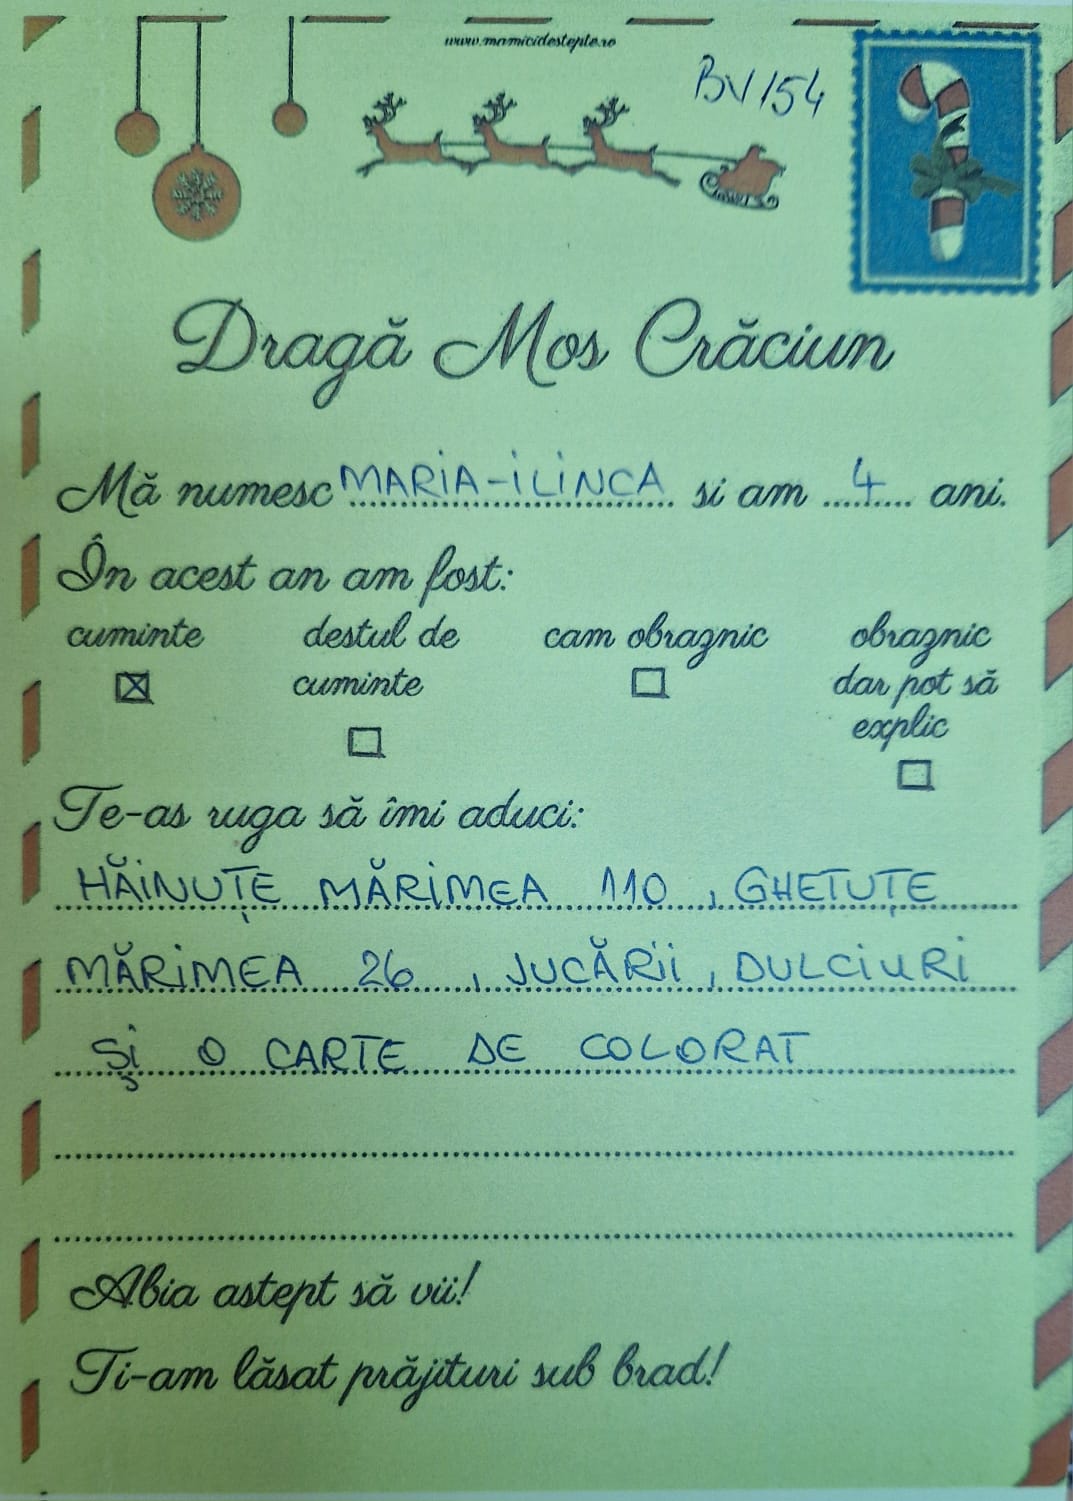 www.mamicidestepte.ro
BV154
Dragă Mos Crăciun
Mă numesc MARIA-ILINCA si am 4 ani.
În acest an am fost:
cuminte destul de cuminte cam obraznic obraznic dar pot să explic
Te-as ruga să îmi aduci:
HĂINUȚE MĂRIMEA 110, GHETUȚE
MĂRIMEA 26, JUCĂRII, DULCIURI
ȘI O CARTE DE COLORAT
Abia astept să vii!
Ti-am lăsat prăjituri sub brad!